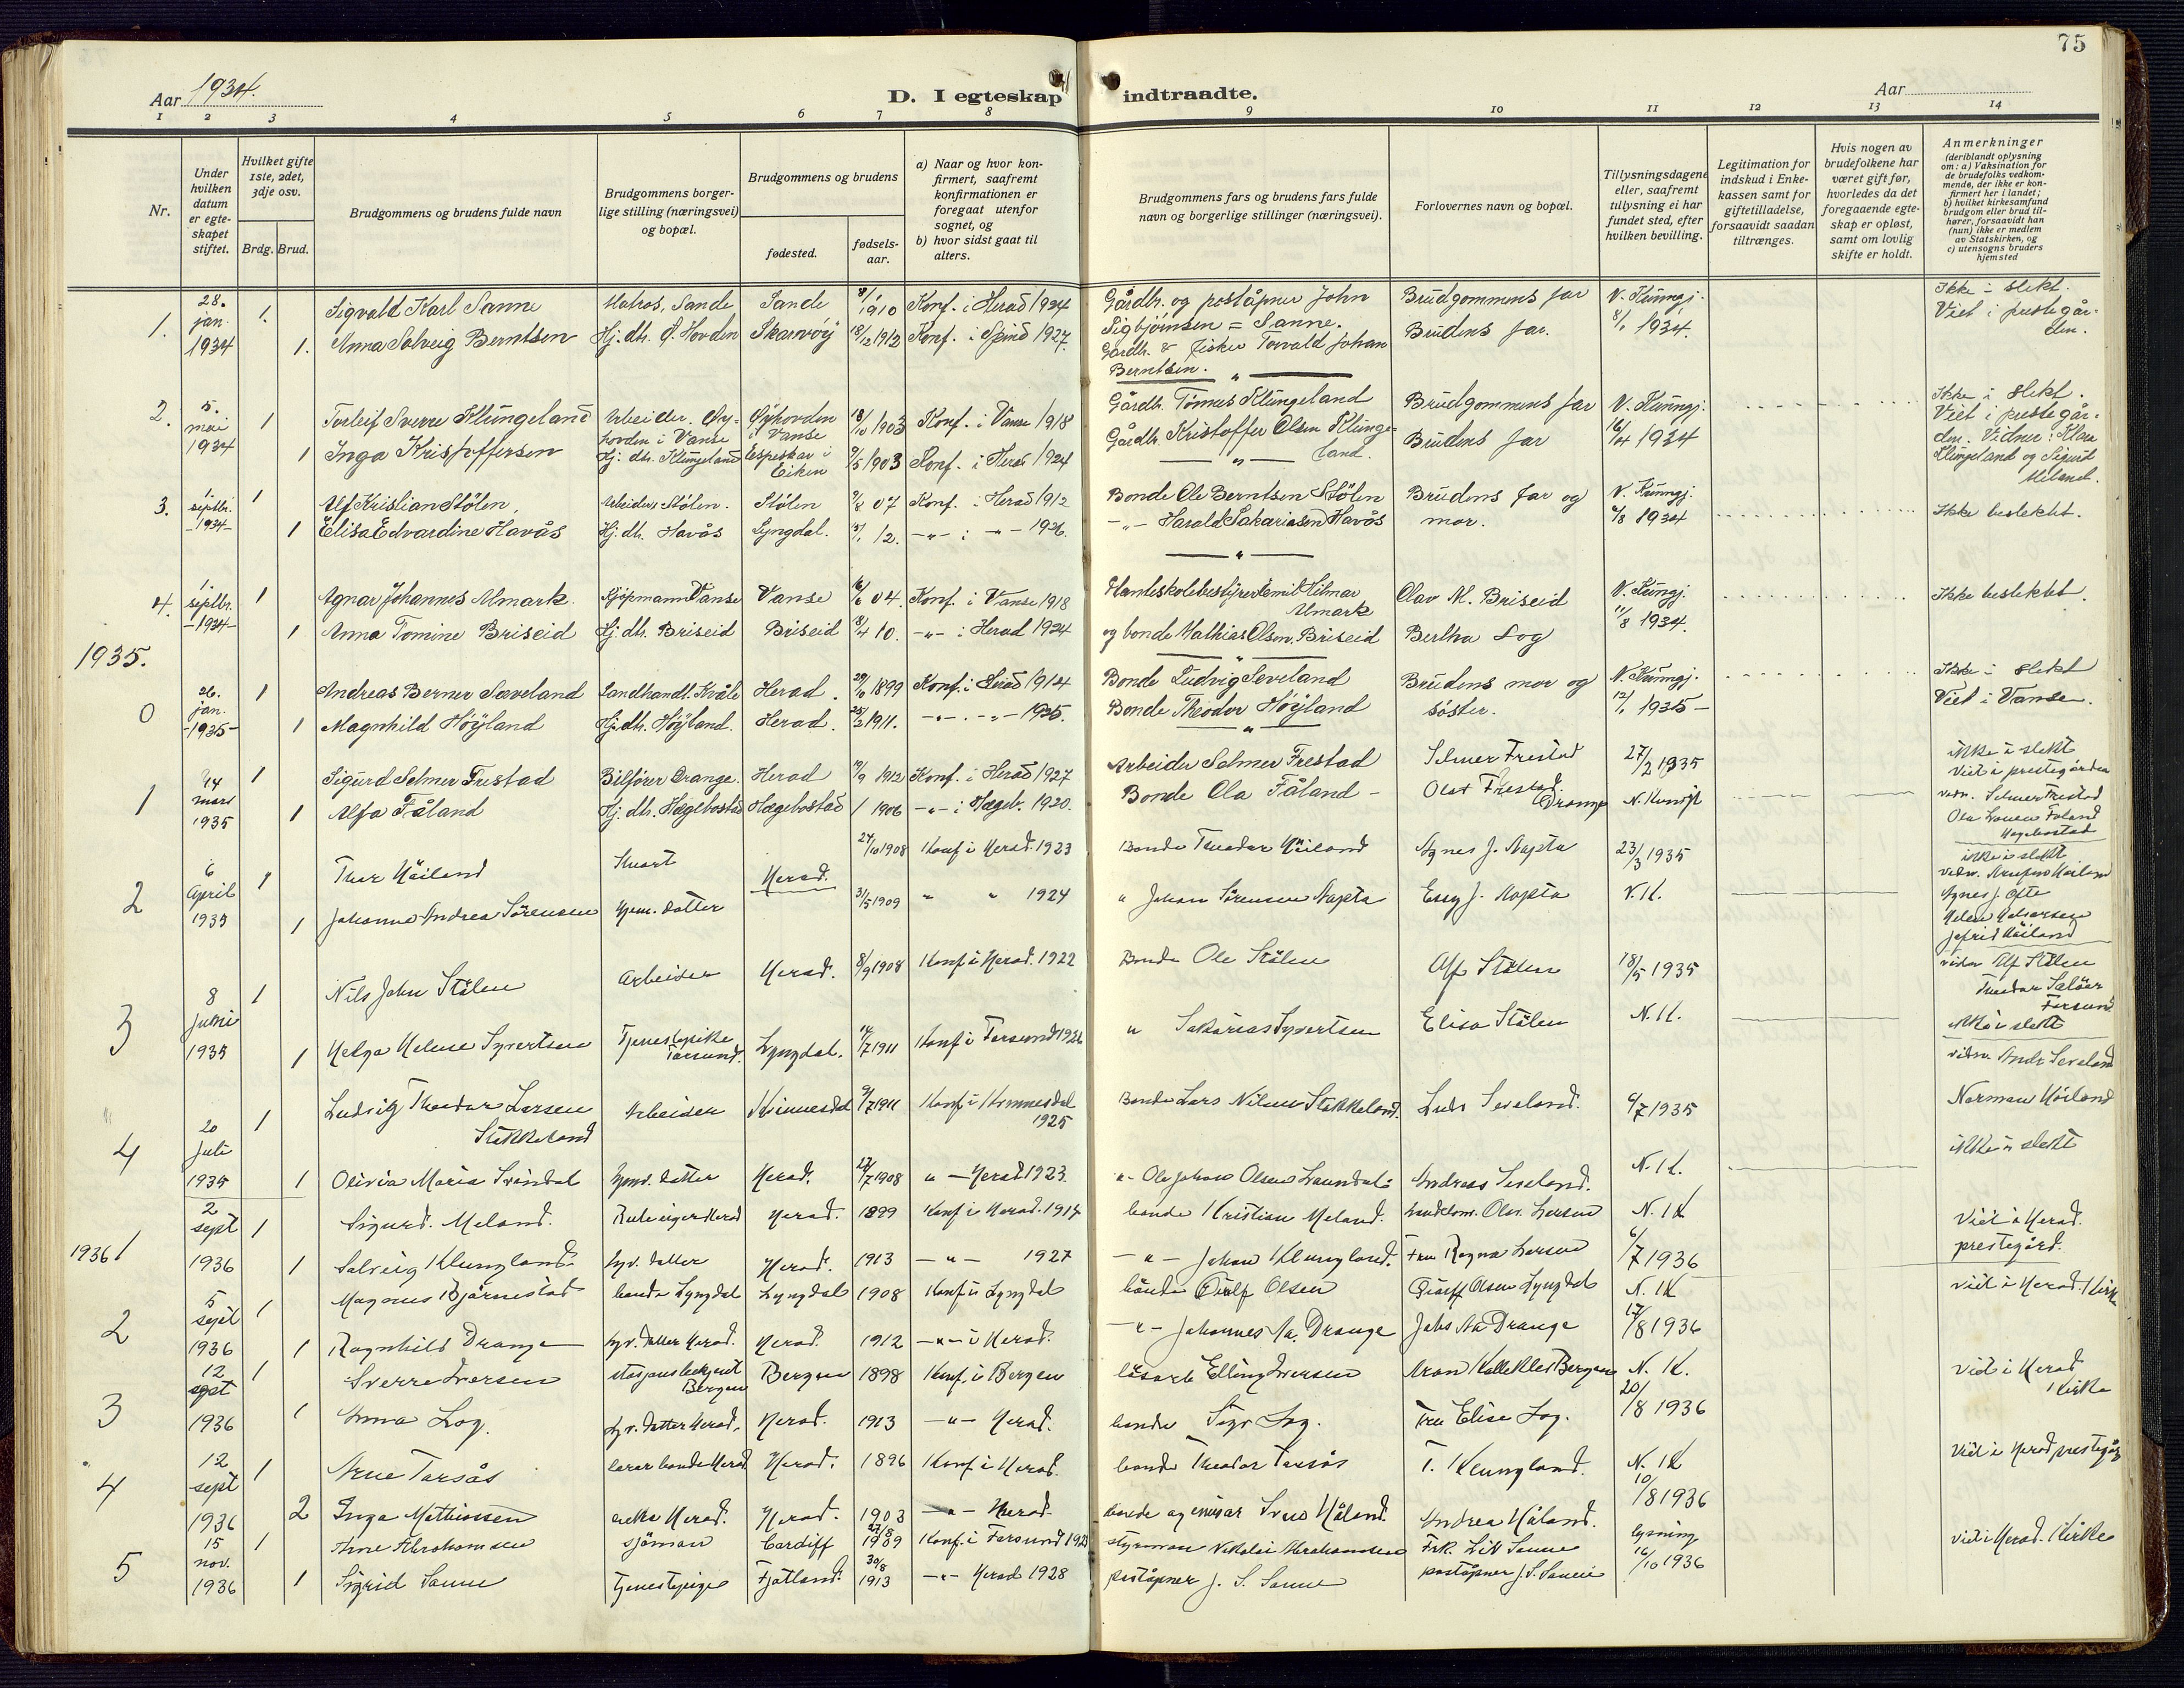 75
Aar 1934.
D. I egteskap indtraadte.
Aar
1 2 3 4 5 6 7 8 9 10 11 12 13 14
Nr.
Under hvilken datum er egte-skapet stiftet.
Hvilket gifte 1ste, 2det, 3dje osv.
Brdg. Brud.
Brudgommens og brudens fulde navn
Brudgommens borger-lige stilling (næringsvei) og bopæl.
Brudgommens og brudens
fødested.
fødsels-aar.
a) Naar og hvor kon-firmert, saafremt konfirmationen er foregaat utenfor sognet, og
b) hvor sidst gaat til alters.
Brudgommens fars og brudens fars fulde navn og borgerlige stillinger (næringsvei).
Forlovernes navn og bopæl.
Tillysningsdagene eller, saafremt tillysning ei har fundet sted, efter hvilken bevilling.
Legitimation for indskud i Enke-kassen samt for giftetilladelse, forsaavidt saadan tiltrænges.
Hvis nogen av brudefolkene har været gift før, hvorledes da det foregaaende egte-skap er opløst, samt om lovlig skifte er holdt.
Anmerkninger (deriblandt oplysning om: a) Vaksination for de brudefolks vedkom-mende, der ikke er kon-firmert her i landet; b) hvilket kirkesamfund brudgom eller brud til-hører, forsaavidt han (hun) ikke er medlem av Statskirken, og c) utensogns bruders hjemsted
1. 28. jan. 1934 1. Sigvald Karl Sanne Matros, Sande Sande 8/1 1910 Konf. i Herad 1924 Gårdbr. og poståpner John Sigbjörnsen = Sanne. Brudgommens far N. Kunngj. 8/1 1934. Ikke i slekt. Viet i prestegår-den.
1. Anna Solveig Berntsen Hj. dtr. Ø. Hovden Skarvøy 18/12 1912 Konf. i Spind 1927. Gårdbr. & fisker Torvald Johan Berntsen. Brudens far.
2. 5. mai 1934 1 Torleif Sverre Klungeland Arbeider. Øy-hovden i Vanse Øyhovden i Vanse 18/10 1903 Konf. i Vanse 1918 Gårdbr. Tönnes Klungeland Brudgommens far N. Kunngj. 16/4 1934 Ikke i slekt. Viet i prestegår-den. Vidner: Klara Klungeland og Sigurd Meland.
1 Inga Kristoffersen Hj. dtr. Klungeland Espeskar i Eiken 9/5 1903 Konf. i Herad 1924 Gårdbr. Kristoffer Olsen Klunge-land. Brudens far
3. 1. septbr. 1934 1 Alf Kristian Stølen, Arbeider, Stølen. Stølen 9/8 07 Konf. i Herad 1912 Bonde Ole Berntsen Stölen Brudens far og mor. N. Kunngj. 4/8 1934 Ikke beslektet.
1 Elisa Edvardine Havås Hj. dtr. Havås Lyngdal. 31/1 12. -"- i -"- 1926. -"- Harald Sakariasen Havås
4. 1. septbr. 1934 1 Agnar Johannes Almark. Kjöpmann Vanse Vanse 16/6 04. Konf. i Vanse 1918 Emil Hilmar Almark Olav M. Briseid N. Kungj. 11/8 1934. Ikke beslektet.
1 Anna Tomine Briseid Hj. dtr. Briseid Briseid 18/4 10. -"- i Herad 1924 og bonde Mathias Olsen Briseid Bertha Log
1935.
0 26. jan. 1935 1 Andreas Berner Sæveland Landhandl. Kvåle Herad. 29/10 1899 Konf. i Herad 1914 Bonde Ludvig Seveland Brudens mor og söster. N. Kunngj. 12/1 1935 Ikke i slekt Viet i Vanse.
1 Magnhild Höyland Hj. dtr. Höyland. Herad. 25/2 1911. -"- -"- 1925. Bonde Theodor Höyland
1 14 mars 1935 1 Sigurd Selmer Frestad Bilförer Drange. Herad 11/9 1912 Konf. i Herad 1927 Arbeider Selmer Frestad Selmer Frestad 27/2 1935 ikke i slekt Viet i prestegården vidn. Selmer Frestad Ola Hægebostad
1 Alfa Fåland Hj. dtr. Hægebostad Hægebostad 1906 -"- i Hægeb. 1920. Bonde Ola Fåland Olav Frestad Drange N. Kunngj
2 6 April 1935 1 Thor Höiland Smart Herad. 24/10 1908 Konf i Herad. 1923 Bonde Theodor Höiland Agnes J. Røpta 23/3 1935 ikke i slekt
1 Johanne Andrea Sörensen hjem. datter 31/5 1909 " " 1924 " Johan Sörensen Røpta Essy J. Røpta N. K.
3 8 Juni 1935 1 Nils John Stölen Arbeider Herad. 8/9 1908 Konf i Herad. 1922 Bonde Ole Stölen Alf Stölen 18/5 1935 vidner Alf Stölen Theodor Salöer Farsund ikke i slekt
1 Helga Helene Syvertsen Tjenestepike Farsund. Lyngdal. 14/7 1911 Konf i Farsund 1926 " Sakarias Syvertsen Elisa Stölen N. K.
4 20 Juli 1935 1 Ludvig Theodor Larsen Stakkeland Arbeider Kvinnesdal 9/7 1911 Konf i Kvinnesdal 1925 Bonde Lars Nilsen Stakkeland. Seveland. 6/7 1935 vidner Andr Seveland Norman Höiland ikke i slekt
1 Olivia Maria Svindal hjmv. datter Herad. 1908 " - Herad 1923. " Ole Johan Olsen Andreas Seveland. N. K.
1936 1 2 sept 1936 1 Sigurd. Meland. Herad Herad. 1899 Konf i Herad. 1914 bonde Kristian Meland. Landelsm. Olav. Larsen N. K 6/7 1936 Viet i Herad. prestegård.
1 Solveig Klungland hjv. datter Herad. 1913 -"- 1927 -"- Johan Klungland. Fru Ragna Larsen
2 5 sept 1936 1 Magnus Bjørnestad bonde Lyngdal Lyngdal 1908 Konf i Lyngdal bonde Olsen Olsen Lyngdal N. K 17/8 1936 viet i Herad Kirke
1 Ragnhild Drange hjv. datter Herad. Herad. 1912 -"- i Herad. -"- Johannes Aa. Drange Johs Aa Drange
3 12 sept 1936 1 Sverre Iversen Bergen Bergen 1898 Konf. i Bergen Elling Iversen Bergen N. K. 20/8 1936 viet i Herad Kirke
1 Anna Log. hjv. datter Herad. Herad. 1913 -"- Herad. bonde Log. Fru Elise Log.
4 12 sept 1936 1 Arne Torsås lærer bonde Herad Herad. 1896 Konf i Herad. bonde Theodor Torsås T. Klungland. N. K 10/8 1936 Viet i Herad prestegår
2 Inga Mathiassen enke Herad. Herad. 1903 -"- Herad. bonde og Håland. Andrea Håland.
5 15 nov. 1936 1 Arne Abrahamsen sjömann Cardiff 27/8 1909 Konf. i Farsund styrmann Nikolai Abrahamsen Frk. Liv Sanne lysning 16/10 1936 viet i Herad. Kirke
1 Sigrid Sanne tjenestepige Fjotland 30/8 1913 -"- Herad 1928 poståpner J. S. Sanne poståpner J. S. Sanne